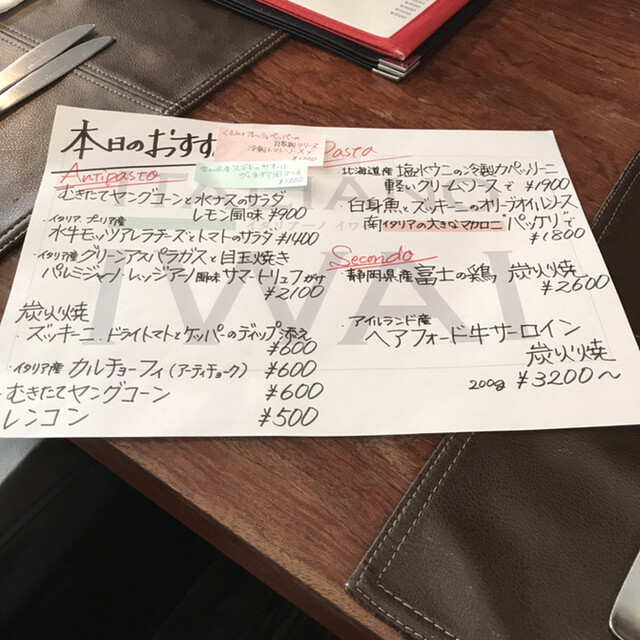 本日のおすす
Antipasto
むきたてヤングコーンと水ナスのサラダ
レモン風味 ¥900
・イタリア、プリア産
水牛モッツァレラチーズとトマトのサラダ ¥1400
・イタリア産 グリーンアスパラガスと目玉焼き
パルミジャーノ・レッジアーノ風味 サマートリュフがけ
¥2100
炭火焼
・ズッキーニ、ドライトマトとケッパーのディップ添え
¥600
・イタリア産 カルチョーフィ(アーティチョーク) ¥600
・むきたてヤングコーン ¥600
レンコン ¥500
自家製
冷製トマトソース
¥1200
Pasta
北海道産 塩水ウニの冷製カペッリーニ
軽いクリームソースで ¥1900
・白身魚とズッキーニのオリーブオイルソース
南イタリアの大きなマカロニ "パッケリ"で
¥1800
Secondo
・静岡県産 富士の鶏 炭火焼
¥2600
・アイルランド産
ヘアフォード牛サーロイン
炭火焼
200g ¥3200〜
IWAI